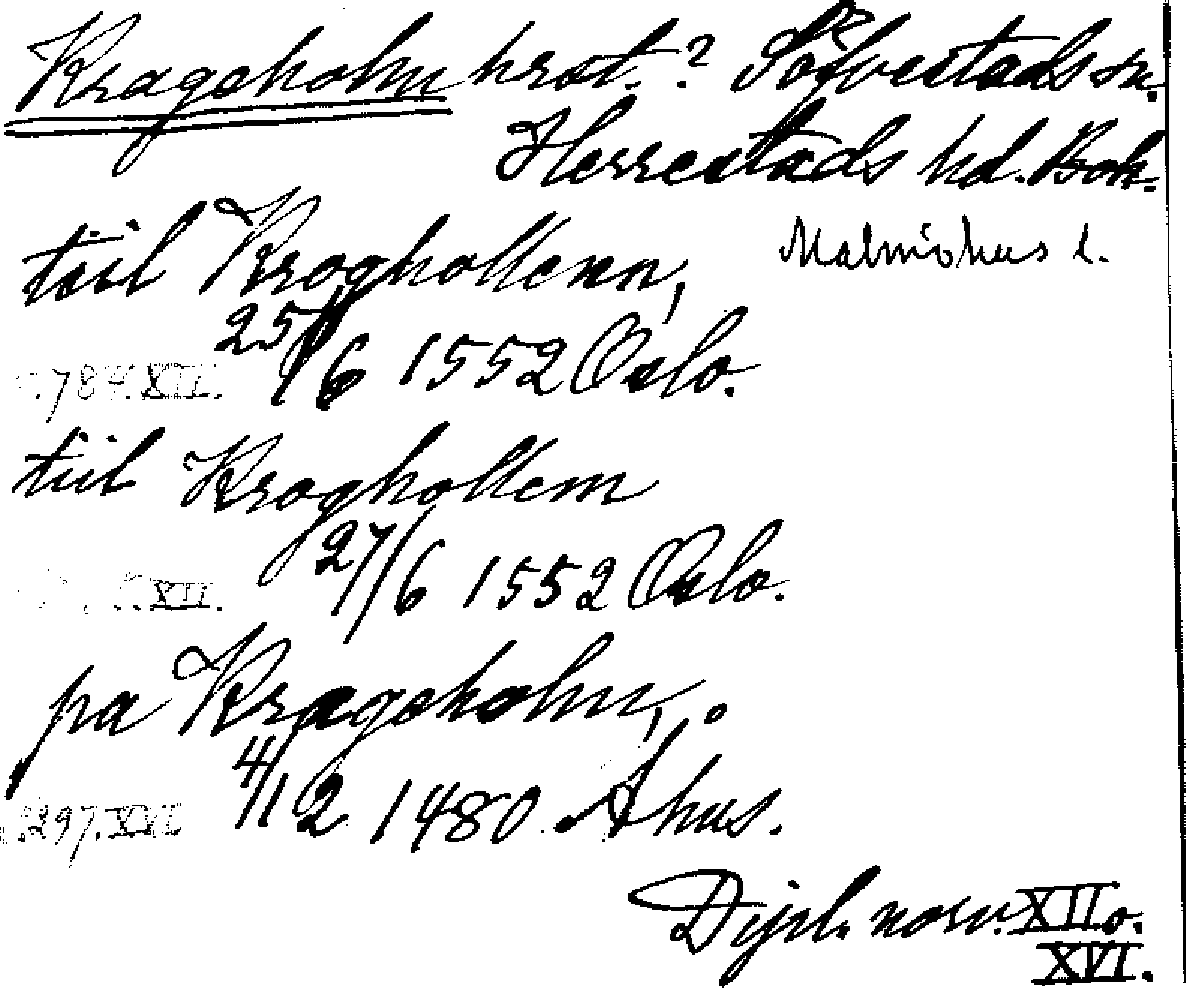 Krageholm hrst.? Söfvestads sn.
Herrestads hd. Boh.
Malmöhus l.
tiil Kroghollenn,
25/6 1552 Oslo.
784. XII.
tiil Kroghollem
27/6 1552 Oslo.
XII.
pa Krageholm,
4/12 1480 Åhus.
297. XVI
Dipl. norv. XII o.
XVI.